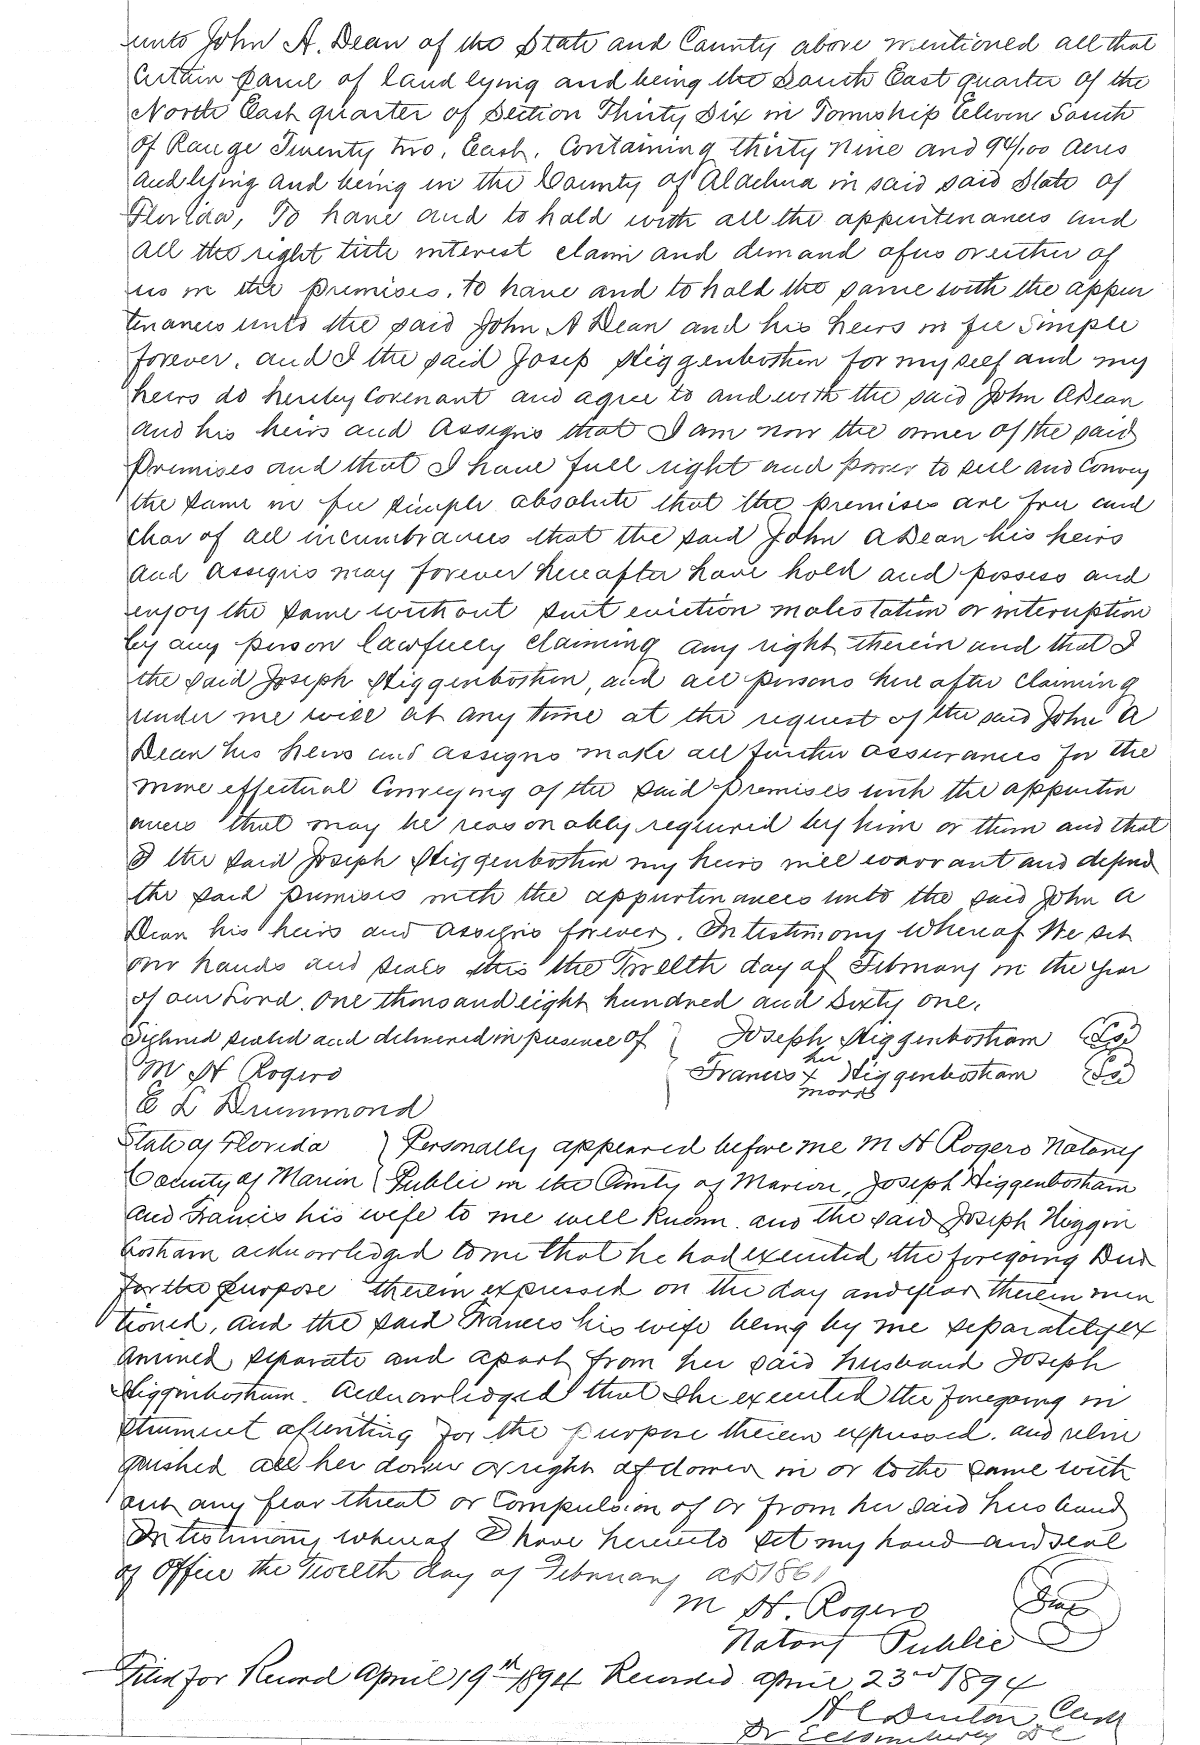 unto John A. Dean of the State and County above mentioned all that
certain parcel of land lying and being the South East quarter of the
North East quarter of Section Thirty Six in Township Eleven South
of Range Twenty two, East, Containing thirty nine and 94/100 acres
and lying and being in the County of Alachua in said said State of
Florida, To have and to hold with all the appurtenances and
all the right title interest claim and demand of us or either of
us in the premises, to have and to hold the same with the appur
tenances unto the said John A Dean and his heirs in fee simple
forever. and I the said Josep Higgenbothen for my self and my
heirs do hereby covenant and agree to and with the said John A Dean
and his heirs and assigns that I am now the owner of the said
premises and that I have full right and power to sell and convey
the same in fee simple absolute that the premises are free and
clear of all incumbrances that the said John A Dean his heirs
and assigns may forever hereafter have hold and possess and
enjoy the same without suit eviction molestation or interuption
by any person lawfully claiming any right therein and that I
the said Joseph Higgenbothen, and all persons here after claiming
under me will at any time at the request of the said John A
Dean his heirs and assigns make all further assurances for the
more effectual conveying of the said premises with the appurten
ances that may be reasonably required by him or them and that
I the said Joseph Higgenbothen my heirs will warrant and defend
the said premises with the appurtenances unto the said John A
Dean his heirs and assigns forever. In testimony whereof We set
our hands and seals this the Twelth day of February in the year
of our Lord. One thousand eight hundred and sixty one.
Sighned sealed and delivered in presence of } Joseph Higgenbotham (Ls)
M H Rogers Francis her x mark Higgenbotham (Ls)
E L Drummond
State of Florida } Personally appeared before me M H Rogers Notary
County of Marion { Public in the County of Marion, Joseph Higgenbotham
and Francis his wife to me well known. and the said Joseph Higgin
botham acknowledged to me that he had executed the foregoing Deed
for the purpose therein expressed on the day and year therein men
tioned, and the said Frances his wife being by me separately ex
amined separate and apart from her said husband Joseph
Higgenbotham. Acknowledged that she executed the foregoing in
strument for the purpose therein expressed. and relin
quished all her dower or right of dower in or to the same with
out any fear threat or compulsion of or from her said husband
In testimony whereof I have hereunto set my hand and seal
of Office the Twelth day of February AD 1861
M H. Rogers (Seal)
Notary Public
Filed for Record April 19th 1894 Recorded April 23rd 1894
H C Denton Clerk
DC